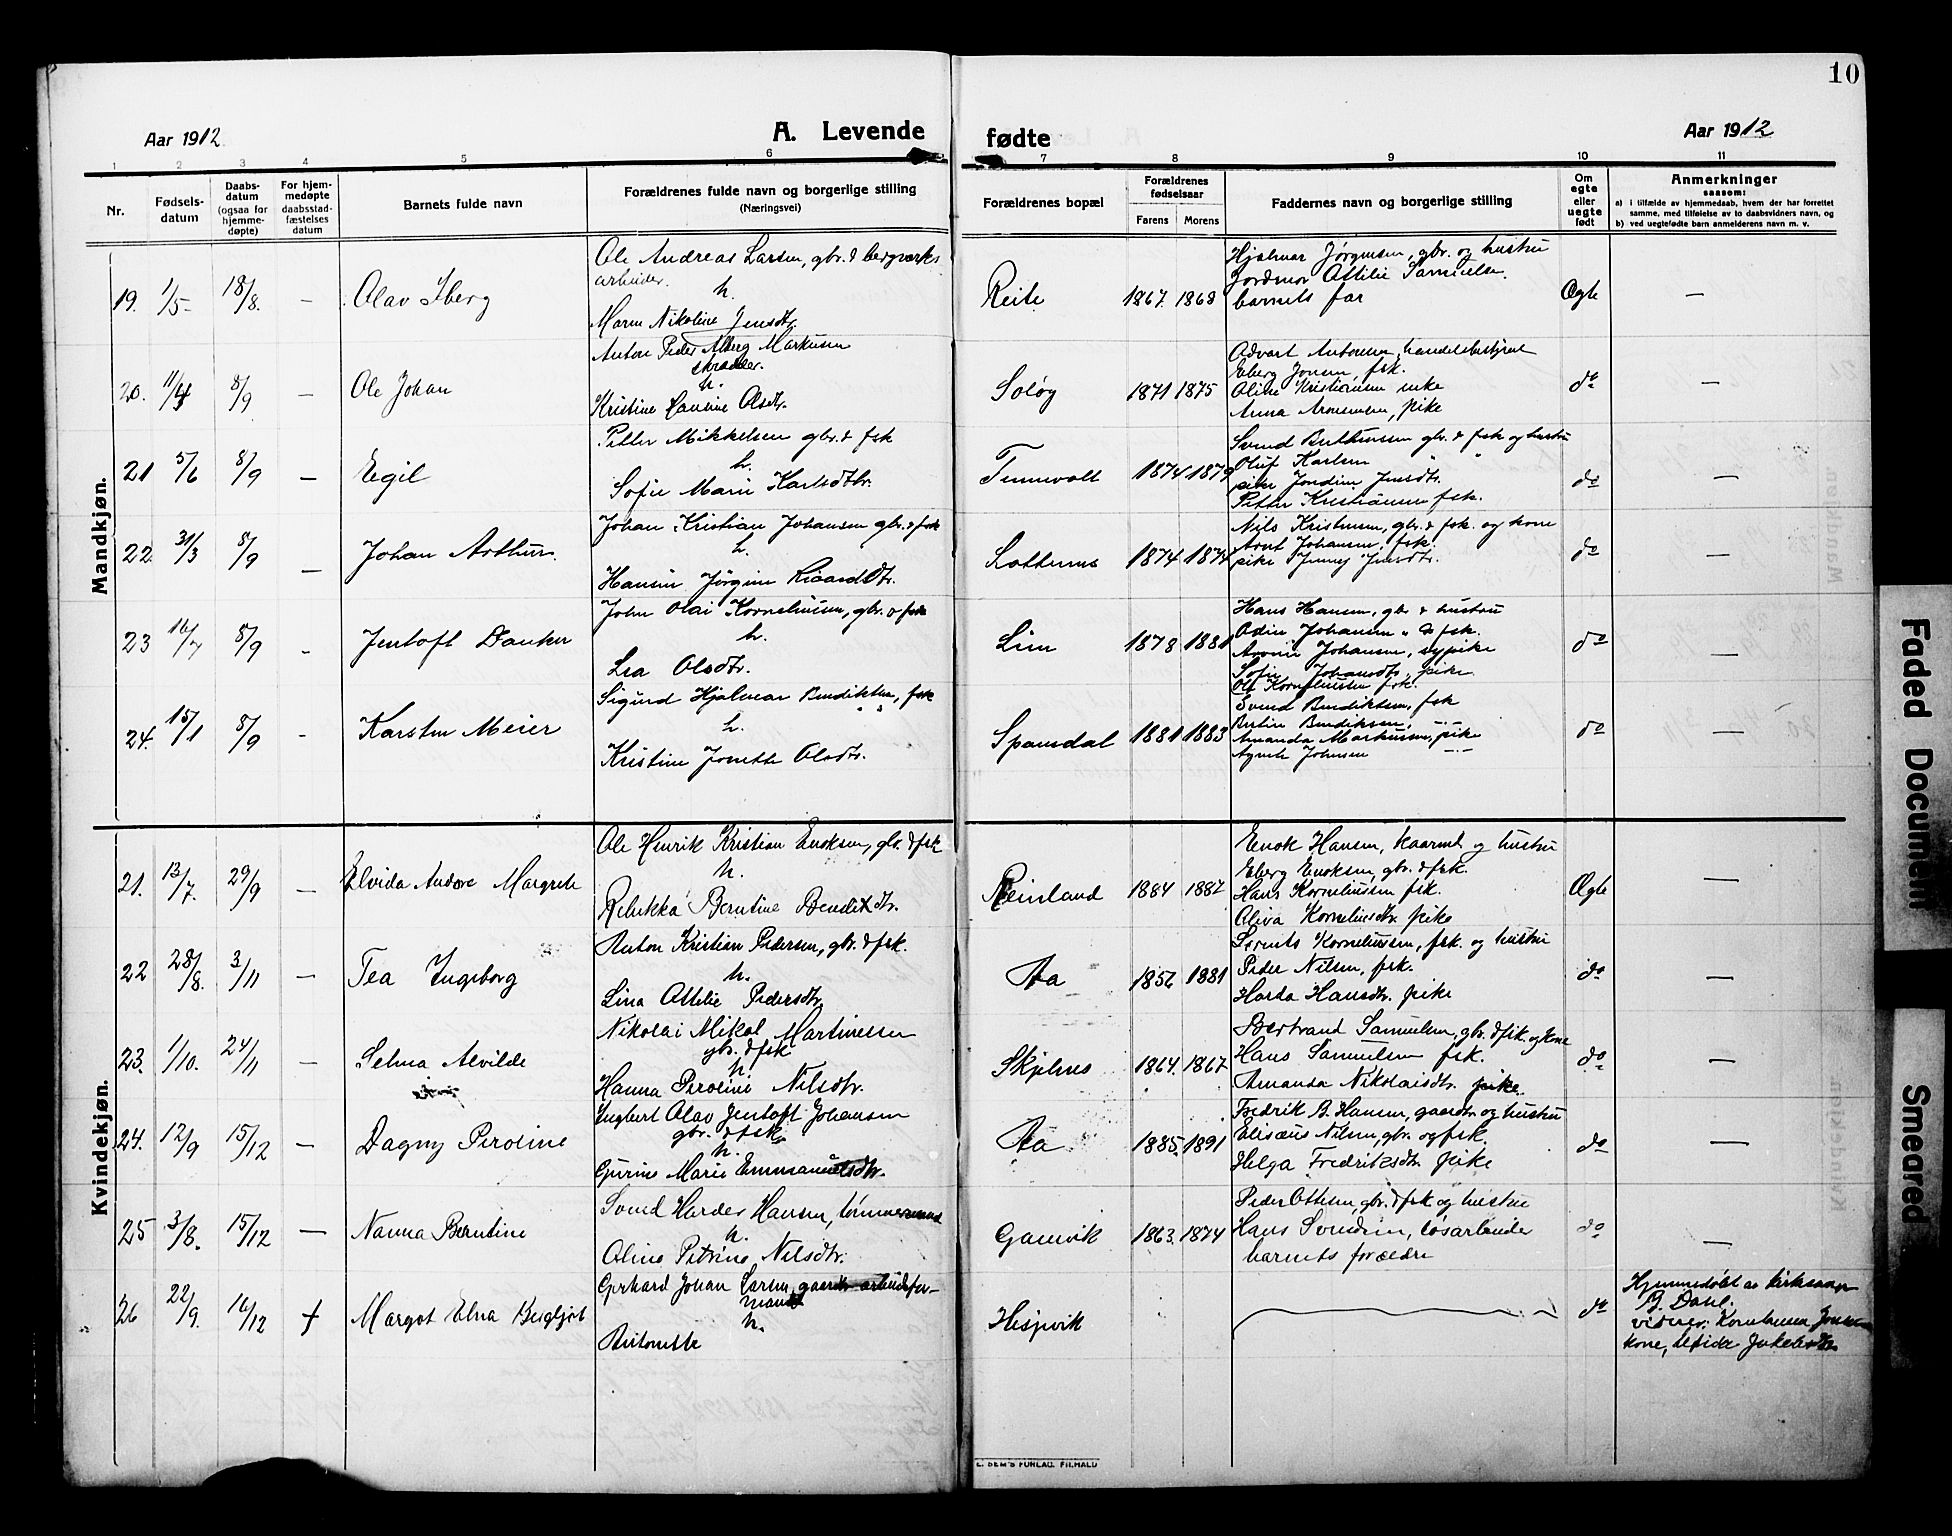 10
Aar 1912
A. Levende
fødte
Aar 1912
1 2 3 4 5 6 7 8 9 10 11
Nr.
Fødsels-
datum
Daabs-
datum
(ogsaa for
hjemme-
døpte)
For hjem-
medøpte
daabsstad-
fæstelses
datum
Barnets fulde navn
Forældrenes fulde navn og borgerlige stilling
(Næringsvei)
Forældrenes bopæl
Forældrenes
fødselsaar
Farens Morens
Faddernes navn og borgerlige stilling
Om
egte
eller
uegte
født
Anmerkninger
saasom:
a) i tilfælde av hjemmedaab, hvem der har forrettet
samme, med tilføielse av to daabsvidners navn, og
b) ved uegtefødte barn anmelderens navn m. v.
Mandkjøn.
19. 1/5 18/8. — Olav Iberg
Ole Andreas Larsen, gbr. & bergverks
arbeider.
h.
Maren Nikoline Jensdtr.
Reite 1867. 1868
Hjalmar Jørgensen, gbr. og hustru
Jordmor Ottilie Samuelse
barnets far
Ægte —
20. 8/9 — Ole Johan
Anton Peder Markusen
skrædder.
h.
Kristine Hansine Olsdtr.
Soløy 1871 1875
Edvart Antonsen, handelsbestyrer
Eberg Jonsen, fsk.
Oline Kristiansen enke
Anna Aronsen, pike
do —
21 5/6 8/9 — Egil
Petter Mikkelsen gbr. & fsk
h.
Sofie Marie Karlsdtr.
Tennevoll 1874 1879
Svend Berthinssen gbr. & fsk og hustru
Oluf Karlsen " "
pike Jondine Jensdtr.
Petter Kristiansen fsk.
do —
22. 31/3 8/9 — Johan Arthur.
Johan Kristian Johansen gbr. & fsk
h.
Hansine Jørgine Rikardsdtr.
1874 1874
Nils Kristensen, gbr. & fsk. og kone
Arnt Johansen, fsk.
pike Jenny Jensdtr.
do —
23 16/7 8/9 - Jentoft Danker
John Olai Kornelinsen, gbr. & fsk
h.
Lea Olsdtr.
Lim 1878 1881
Hans Hansen, gbr & hustru
Odin Johansen " & fsk.
Johansen, sypike
Sofie Johansdtr, pike
Olf Korneliussen fsk.
do —
24. 15/1 8/9 - Karsten Meier
Sigurd Hjalmar Bendiktsen, fsk
h.
Kristine Jonette Olsdtr.
Spansdal 1881 1883
Svend Bendiktsen, fsk
Bertin Bendiksen, —"—
Amanda Markussen, pike
Agnete Johnsen —"—
do —
Kvindekjøn.
21. 13/7 29/9 — Elvida Andore Margrete
Ole Henrik Kristian Enoksen, gbr. & fsk
h.
Rebekka Berntine Bendiktdtr.
Reinland 1884 1887
Enok Hansen, kaarmd og hustru
Eberg Enoksen, gbr. & fsk.
Hans Korneliussen fsk.
Oliva Korneliusdtr. pike
Ægte —
22 28/8. 3/11 — Tea Ingeborg
Anton Kristian Pedersen, gbr. & fsk.
h.
Lina Ottilie Pedersdtr.
Aa 1856 1881
Korneliussen, fsk. og hustru
Peder Nilsen, fsk.
Harda Hansdtr. pike
do —
23. 1/10. 24/11 — Selma Alvilde
Nikolai Mikal Martinessen
gbr. & fsk
h.
Hanna Peroline Nilsdtr.
Skjelnes 1864. 1867
Bertrand Samuelsen, gbr. & fsk. og kone
Hans Samuelsen fsk.
Amanda Nikolaisdtr. pike.
do —
24. 12/9 15/12 — Dagny Peroline
Ingbert Olav Jentoft Johansen
gbr. & fsk
h.
Gurine Marie Emmanuelsdtr.
Aa 1885. 1891
Fredrik B. Hansen, gaardbr og hustru
Elisæus Nilsen, gbr. og fsk.
Helga Fredriksdtr. pike
do —
25 3/8. 15/12 — Nanna Berntine
Svend Harder Hansen, tømmermand
h.
Oline Petrine Nilsdtr.
Gamvik 1863. 1874
Peder Ottesen, gbr. & fsk og hustru
Hans Svendsen, løsarbeider
barnets forældre
do —
26 22/9. 16/12 + Margot Elna Bergljot
Gerhard Johan Larsen, gaardbr arbeidsfor-
mand
h.
Antonette
Hesjevik
do
Hjemmedøbt av kirkesanger
B. Dahl.
vidner: Jonsen
kone,
E. SEM'S FORLAG. FR.HALD
Faded Document
Smeared